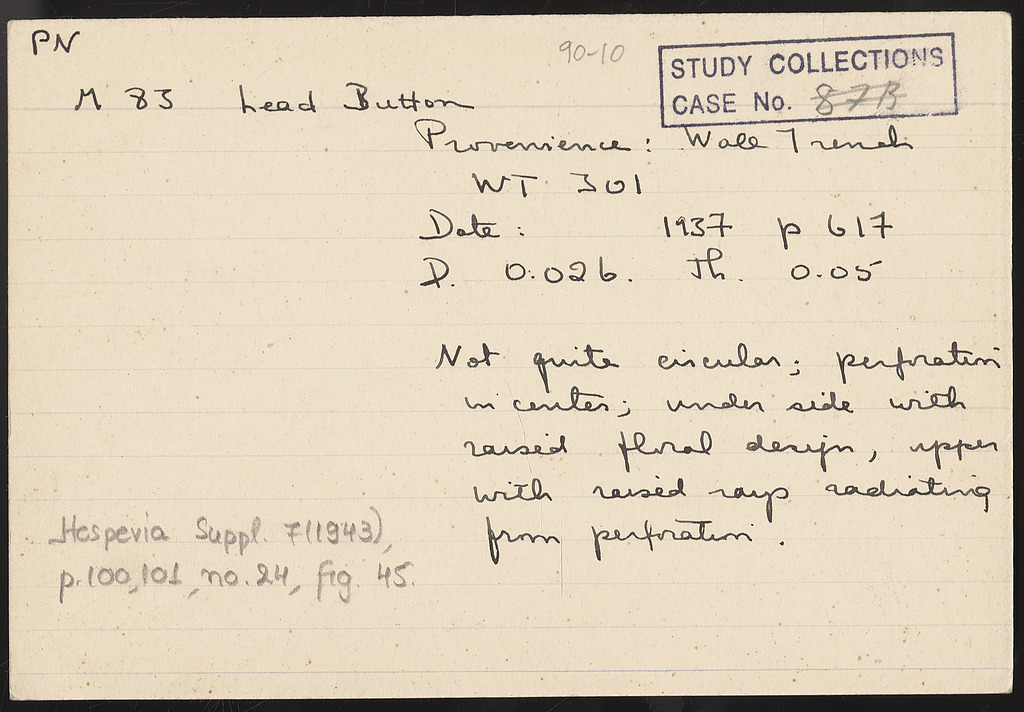 PN
90-10
STUDY COLLECTIONS
CASE No. 87B
M 83 Lead Button
Provenience: Wall Trench
WT 301
Date: 1937 p 617
D. 0.026. Th. 0.05
Not quite circular; perforation
in center; under side with
raised floral design, upper
with raised rays radiating
from perforation.
Hesperia Suppl. 7(1943),
p.100,101, no.24, fig. 45.